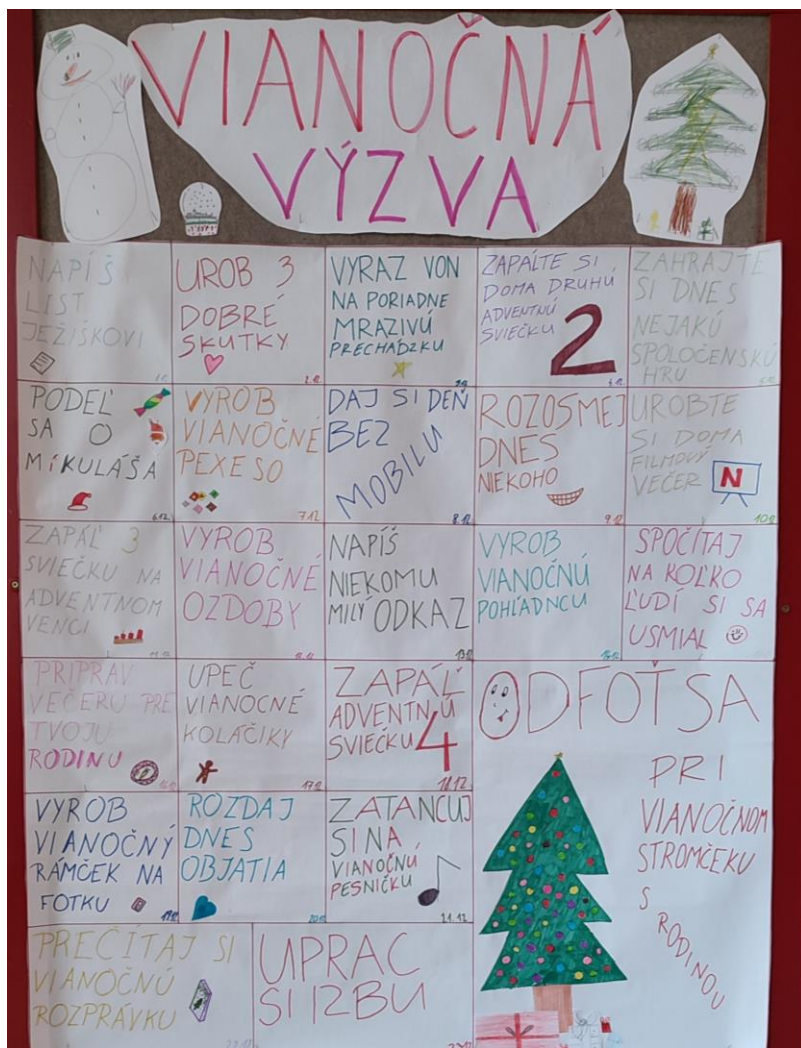 VIANOČNÁ
VÝZVA
NAPÍŠ
LIST
JEŽIŠKOVI
1.12.
UROB 3
DOBRÉ
SKUTKY
2.12.
VYRAZ VON
NA PORIADNE
MRAZIVÚ
PRECHÁDZKU
3.12.
ZAPÁLTE SI
DOMA DRUHÚ
ADVENTNÚ
SVIEČKU
2
4.12.
ZAHRAJTE
SI DNES
NEJAKÚ
SPOLOČENSKÚ
HRU
5.12.
PODEĽ
SA O
MIKULÁŠA
6.12.
VYROB
VIANOČNÉ
PEXESO
7.12.
DAJ SI DEŇ
BEZ
MOBILU
8.12.
ROZOSMEJ
DNES
NIEKOHO
9.12
UROBTE
SI DOMA
FILMOVÝ
VEČER
N
10.12
ZAPÁĽ 3
SVIEČKU NA
ADVENTNOM
VENCI
11.12.
VYROB
VIANOČNÉ
OZDOBY
12.12.
NAPÍŠ
NIEKOMU
MILÝ ODKAZ
13.12
VYROB
VIANOČNÚ
POHĽADNCU
14.12.
SPOČÍTAJ
NA KOĽKO
ĽUDÍ SI SA
USMIAL
PRIPRAV
VEČERU PRE
TVOJU
RODINU
16.12.
UPEČ
VIANOCNÉ
KOLÁČIKY
17.12.
ZAPÁĽ
ADVENTNÚ
SVIEČKU 4
18.12.
ODFOŤ SA
PRI
VIANOČNOM
STROMČEKU
S
RODINOU
VYROB
VIANOČNÝ
RÁMČEK NA
FOTKU
19.12.
ROZDAJ
DNES
OBJATIA
20.12.
ZATANCUJ
SI NA
VIANOČNÚ
PESNIČKU
21.12.
PREČÍTAJ SI
VIANOČNÚ
ROZPRÁVKU
22.12.
UPRAC
SI IZBU
23.12